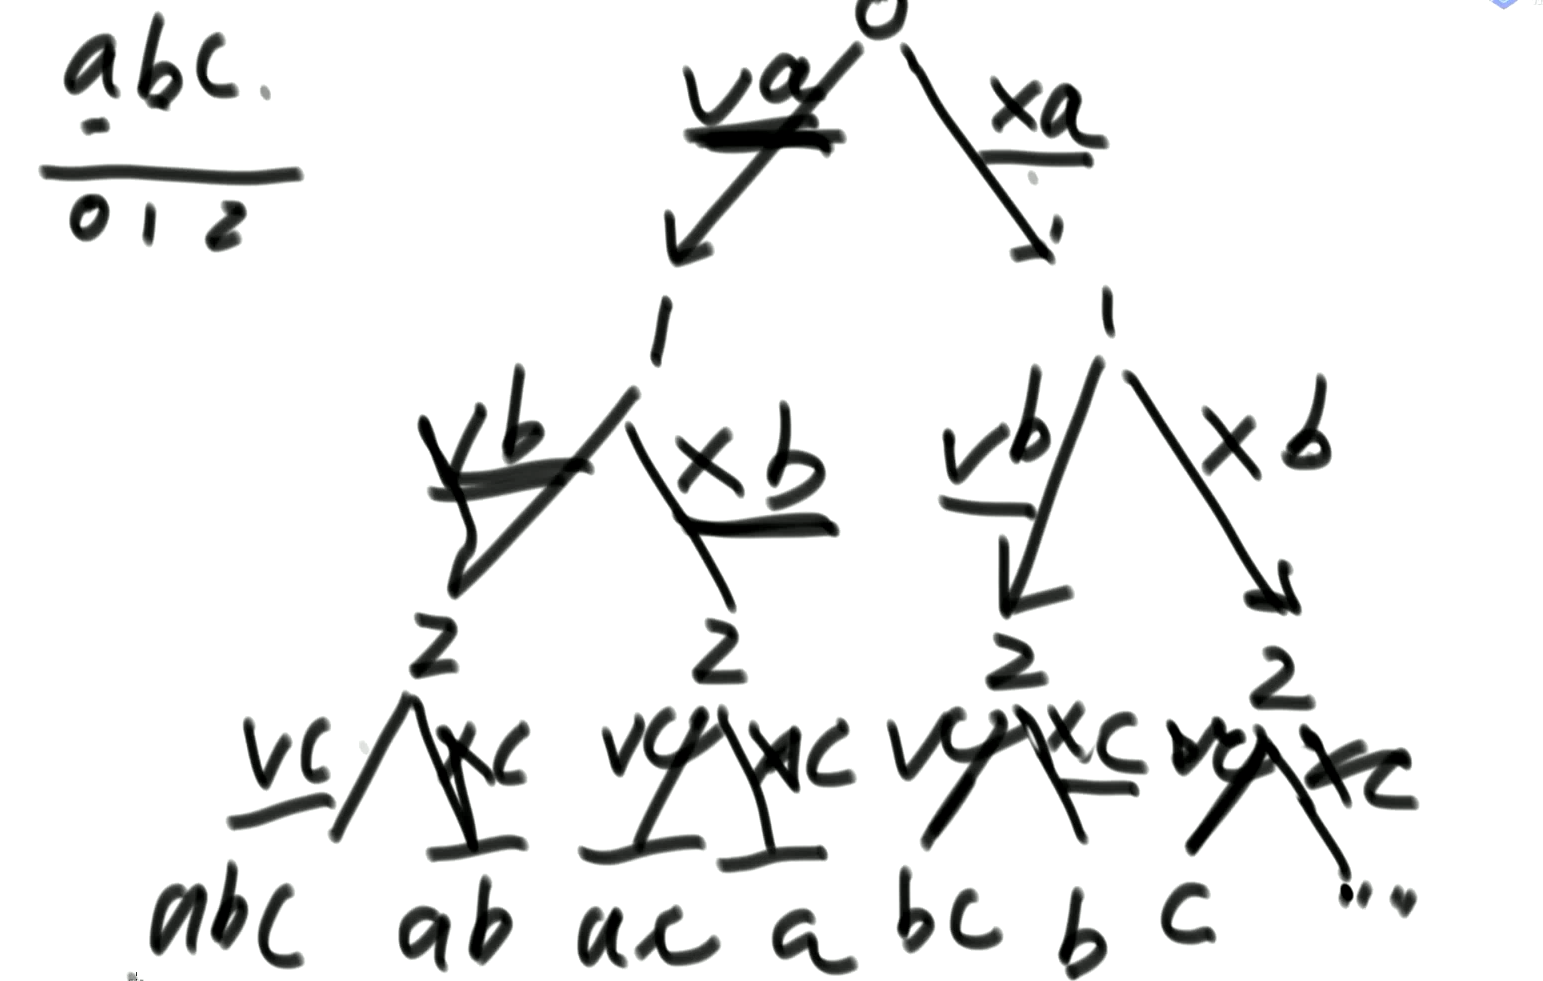 abc.
0 1 2
0
va xa
1 1
vb xb vb xb
2 2 2 2
vc xc vc xc vc xc vc xc
abc ab ac a bc b c ""